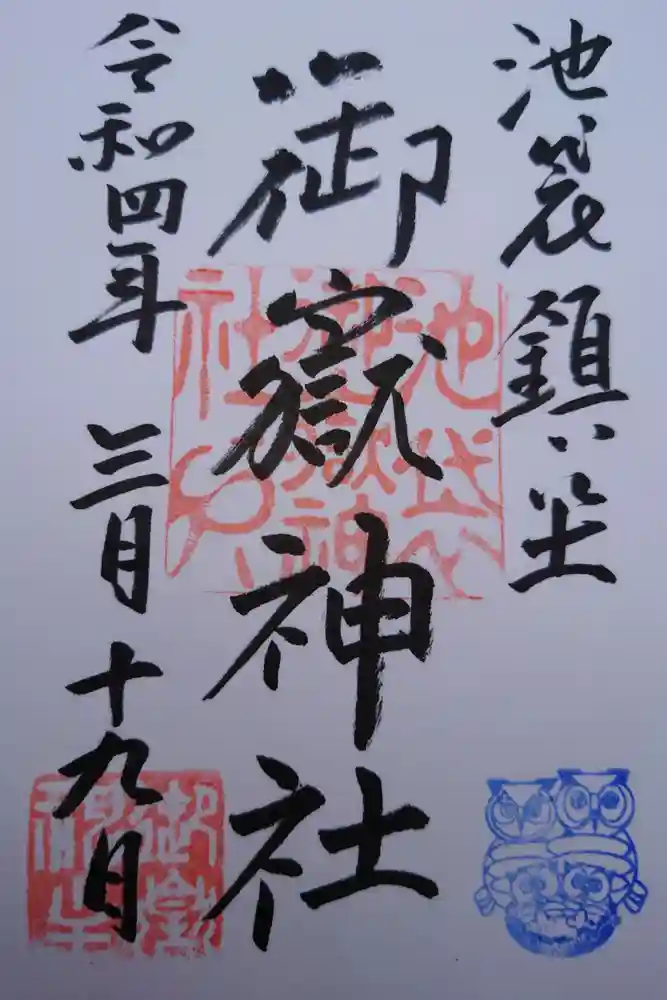 池袋鎮座
御嶽神社
令和四年 三月十九日
池袋御嶽神社